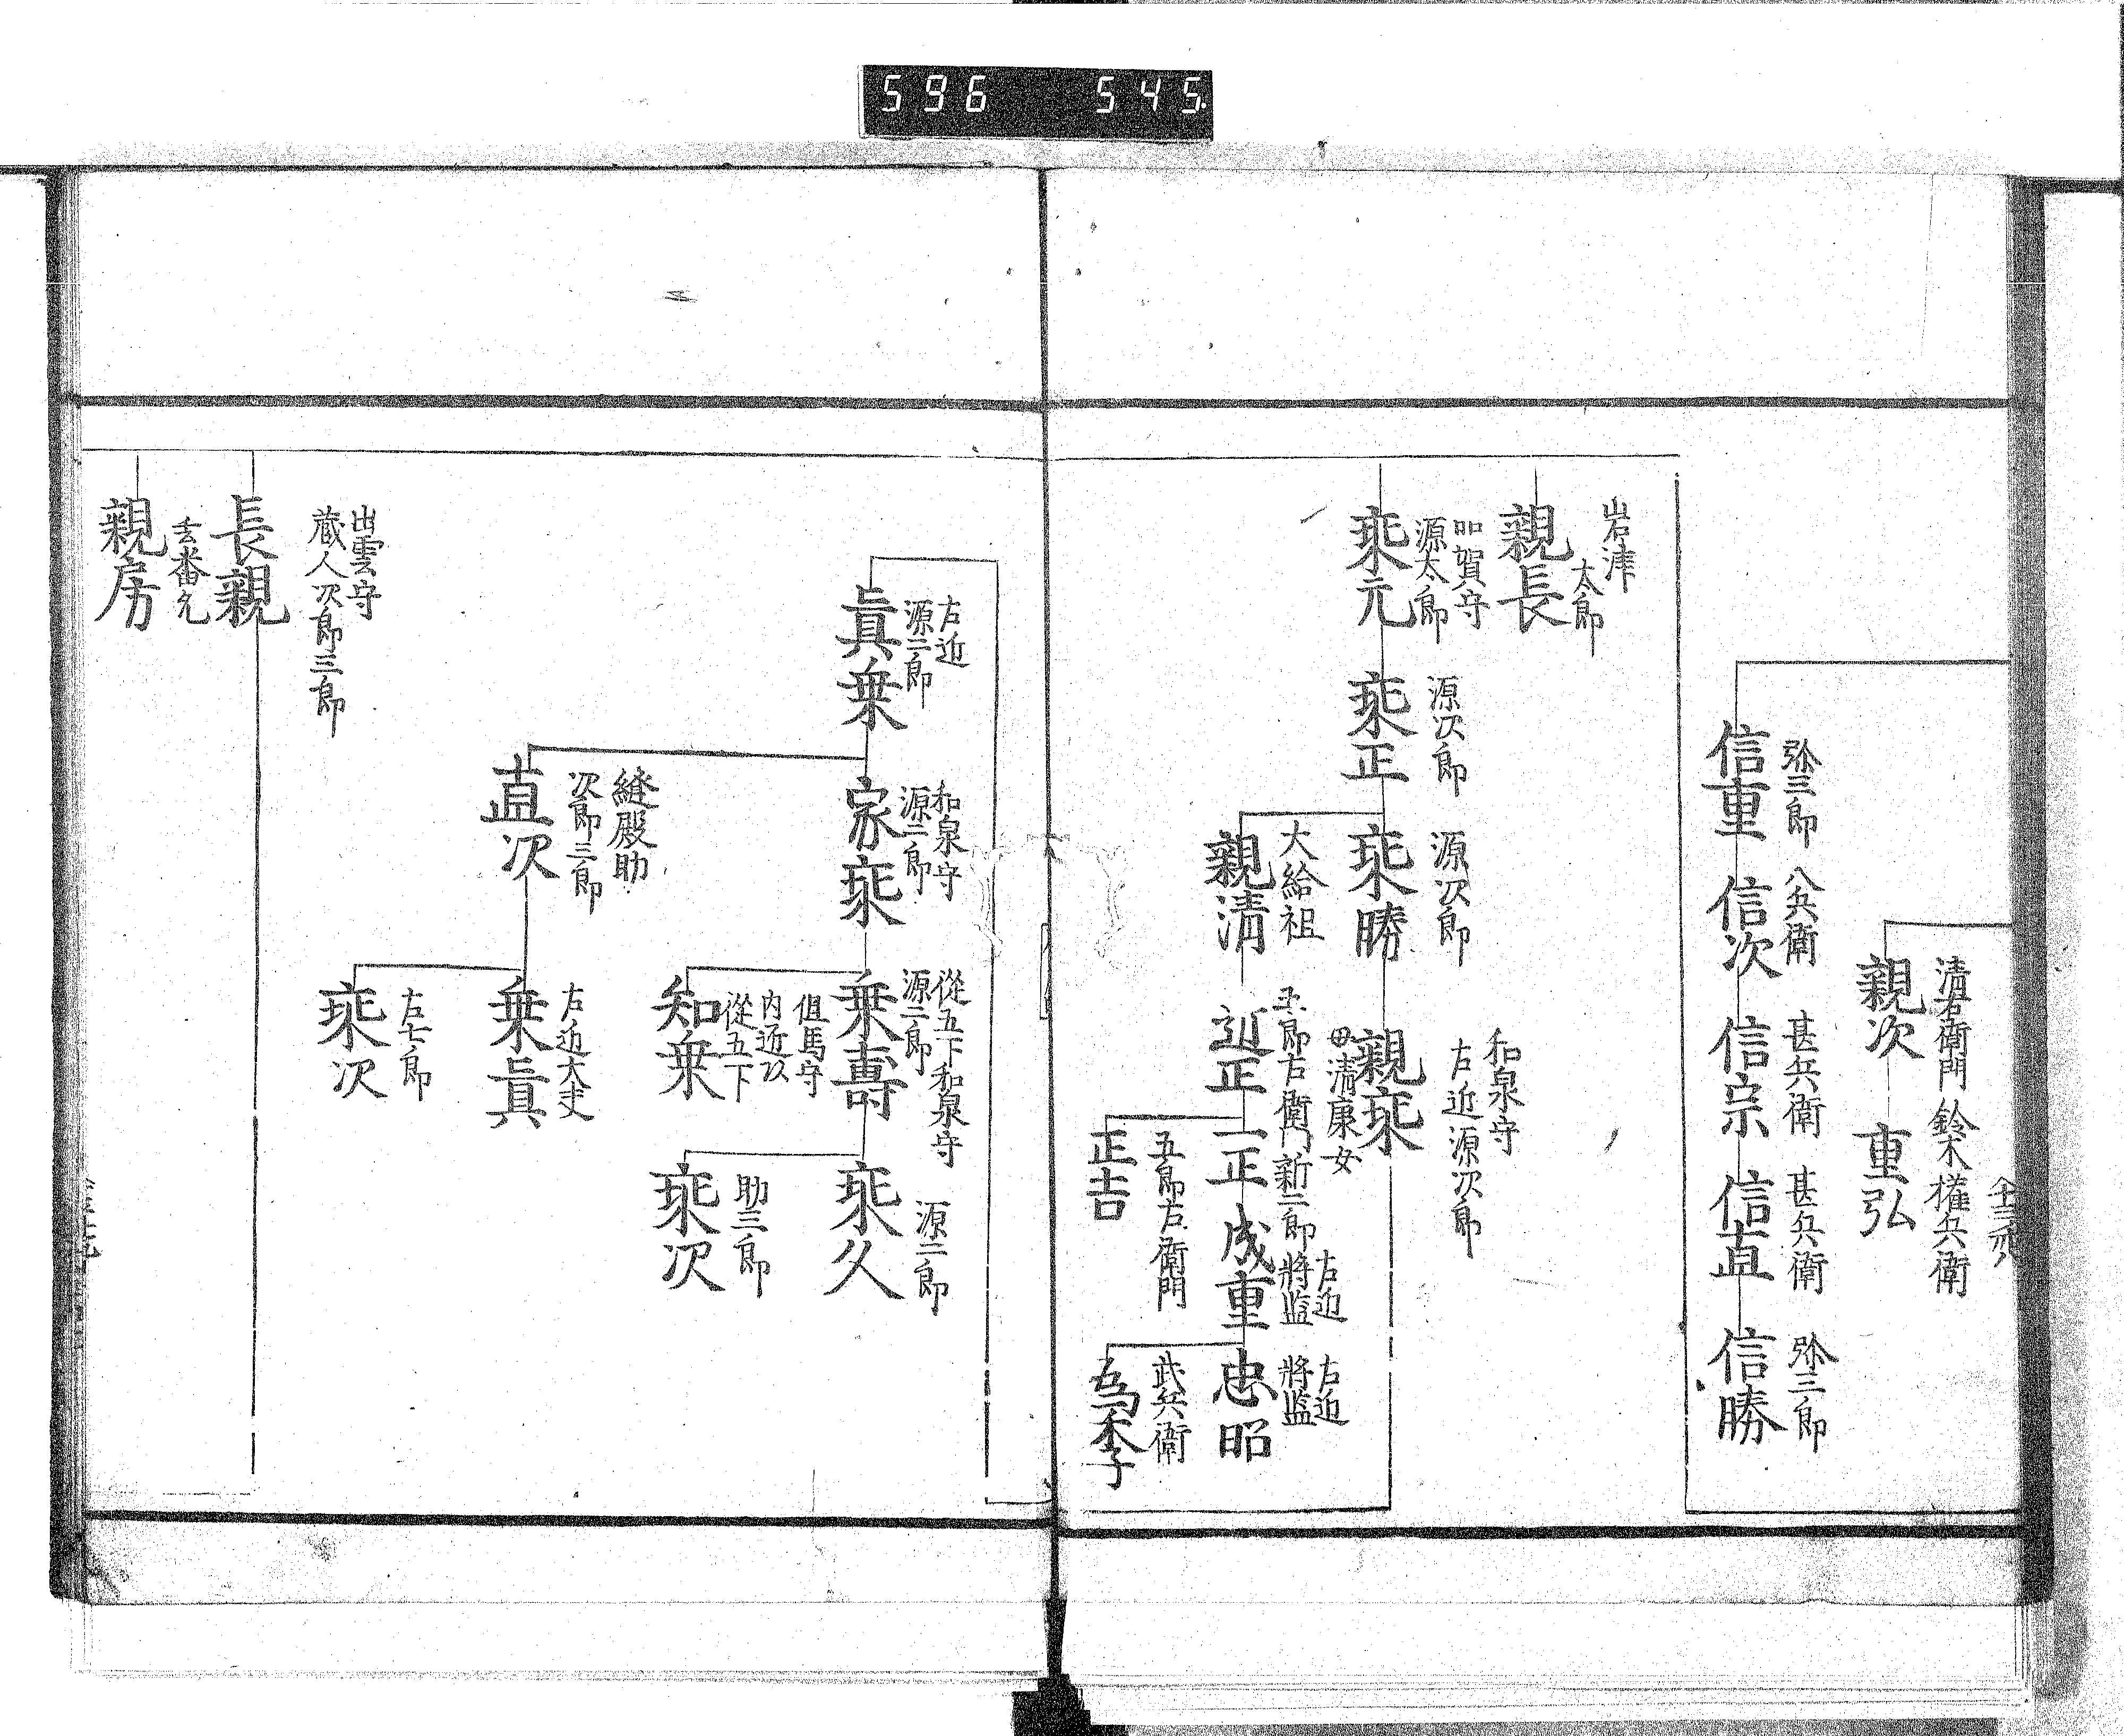 596 545
清右衛門
親次
鈴木權兵衛
重弘
弥三郎
信重
八兵衛
信次
甚兵衛
信宗
甚兵衛
信直
弥三郎
信勝
岩津
太郎
親長
加賀守
源太郎
乘元
源次郎
乘正
源次郎
乘勝
和泉守
左近源次郎
親乘
母清康女
大給祖
親清
右衛門
近正
新二郎
一正
五郎右衛門
正吉
右近
將監
成重
右近
將監
忠昭
武兵衛
為季
左近
源二郎
眞乗
和泉守
源二郎
家乘
從五下和泉守
源二郎
乗壽
源二郎
乘久
助三郎
乘次
但馬守
内近次
從五下
知乗
縫殿助
次郎三郎
直次
右近大夫
乗眞
左七郎
乘次
出雲守
蔵人次郎三郎
長親
親房